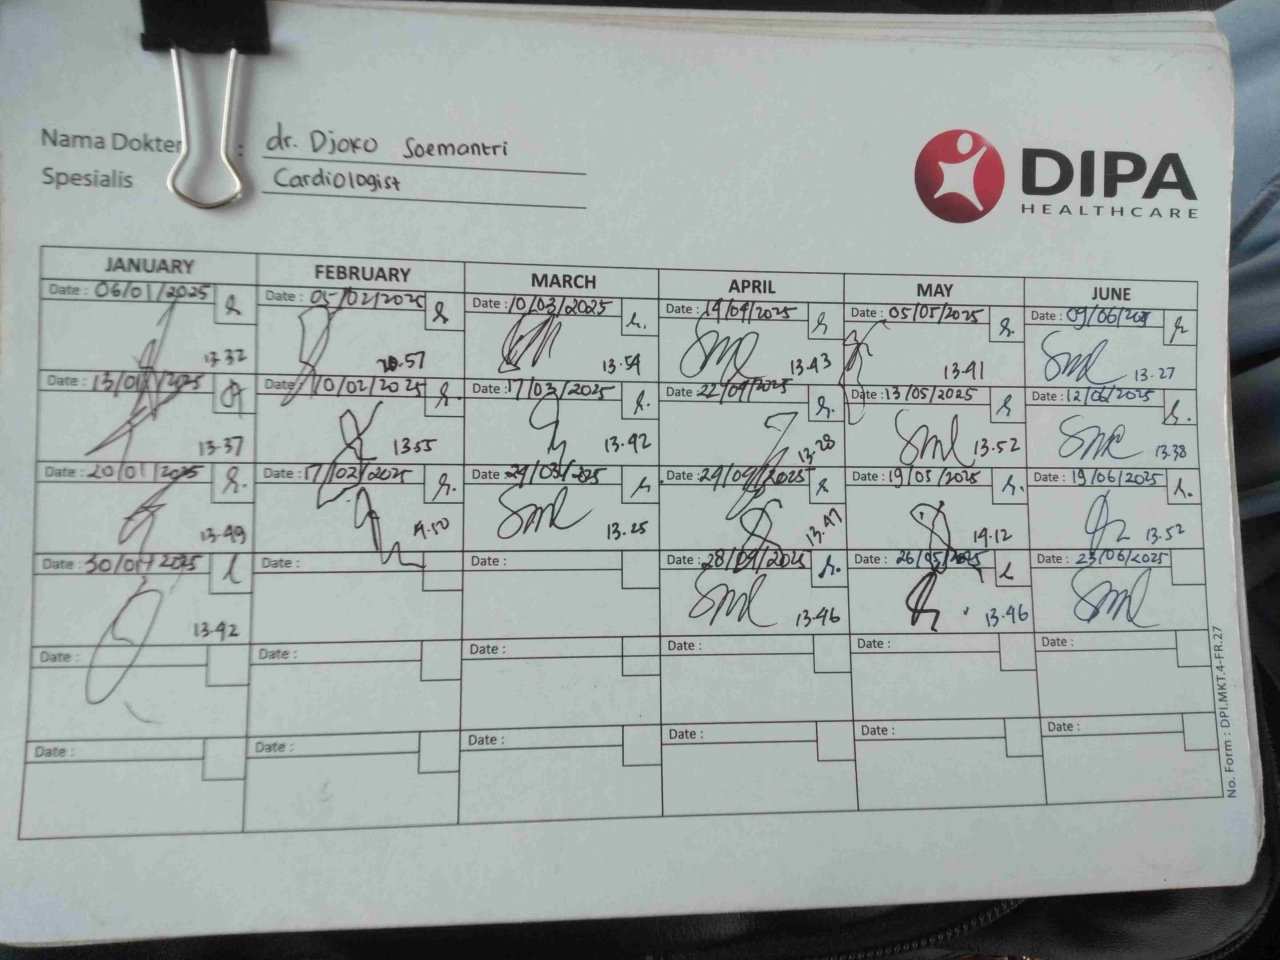 Nama Dokter : dr. Djoko Soemantri
Spesialis Cardiologist
DIPA
HEALTHCARE
JANUARY FEBRUARY MARCH APRIL MAY JUNE
Date : 06/01/2025 Date : 05/02/2025 Date : 10/03/2025 Date : 14/04/2025 Date : 05/05/2025 Date : 09/06/2025
13.32 13.54 13.43 13.41 13.27
Date : 13/01/2025 Date : 10/02/2025 Date : 17/03/2025 Date : 22/04/2025 Date : 13/05/2025 Date : 12/06/2025
13.37 13.55 13.42 13.28 13.52 13.38
Date : 20/01/2025 Date : 17/02/2025 Date : 24/03/2025 Date : 24/04/2025 Date : 19/05/2025 Date : 19/06/2025
13.49 14.50 13.25 13.47 14.12 13.52
Date : 30/01/2025 Date : Date : Date : 28/04/2025 Date : 26/05/2025 Date : 23/06/2025
13.42 13.46 13.46
Date : Date : Date : Date : Date : Date :
Date : Date : Date : Date : Date : Date :
No. Form : DPI.MKT.4-FR.27